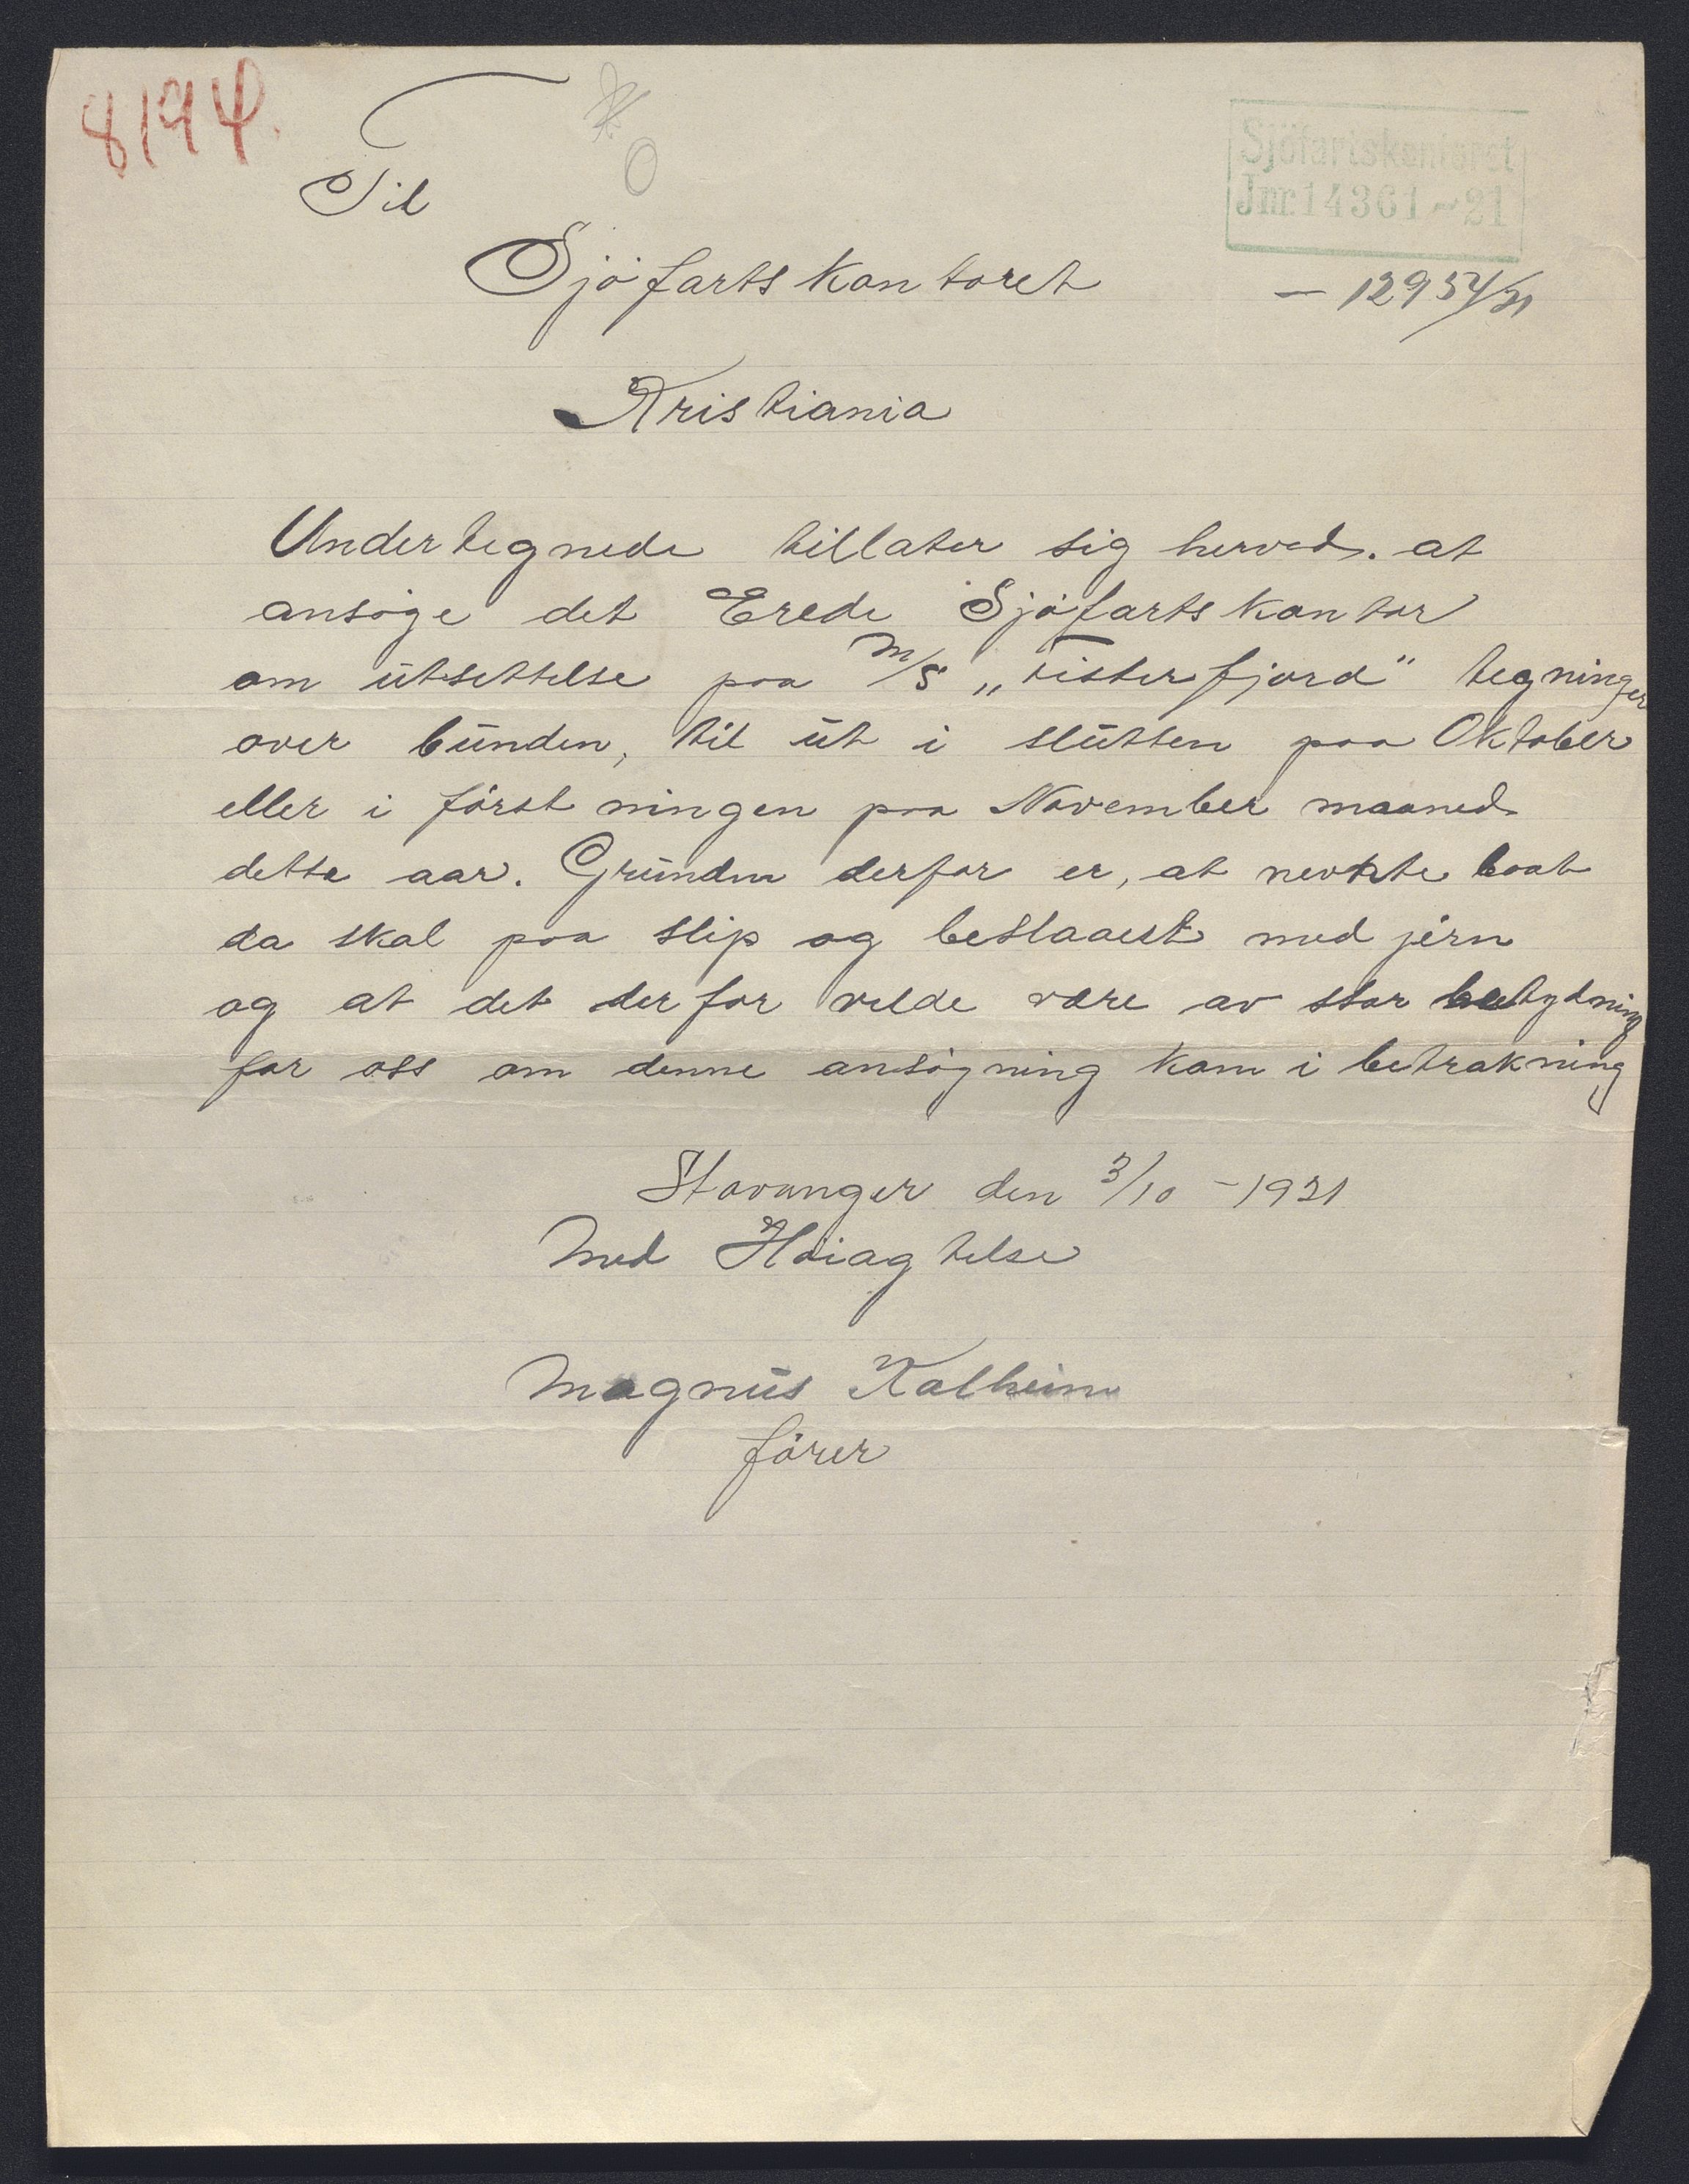 8194.
Til
Sjöfartskontoret
Jnr. 14361 - 21
Sjöfartskontoret
- 12954/21
Kristiania
Undertegnede tillater sig herved. at
ansöge det Erede Sjöfartskontor
om utsettelse paa M/S „Fisterfjord" tegninger
over bunden, til ut i slutten paa Oktober
eller i förstningen paa November maaned
dette aar. Grunden derfor er, at nevnte baat
da skal paa slip og beslaaest med jern
og at det derfor vilde være av stor betydning
for oss om denne ansögning kom i betrakning
Stavanger den 3/10 - 1921
Med Höiagtelse
Magnus Kalheim
förer